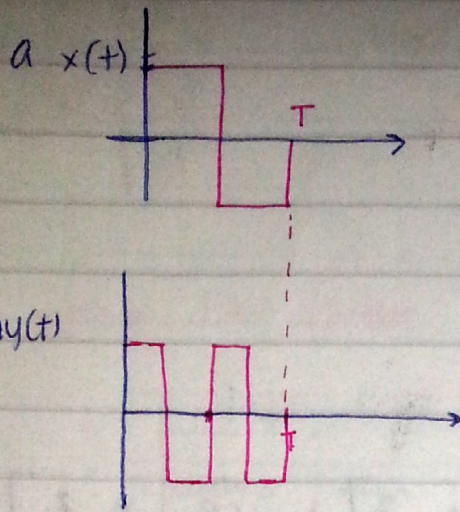 a x(t)
T
y(t)
T